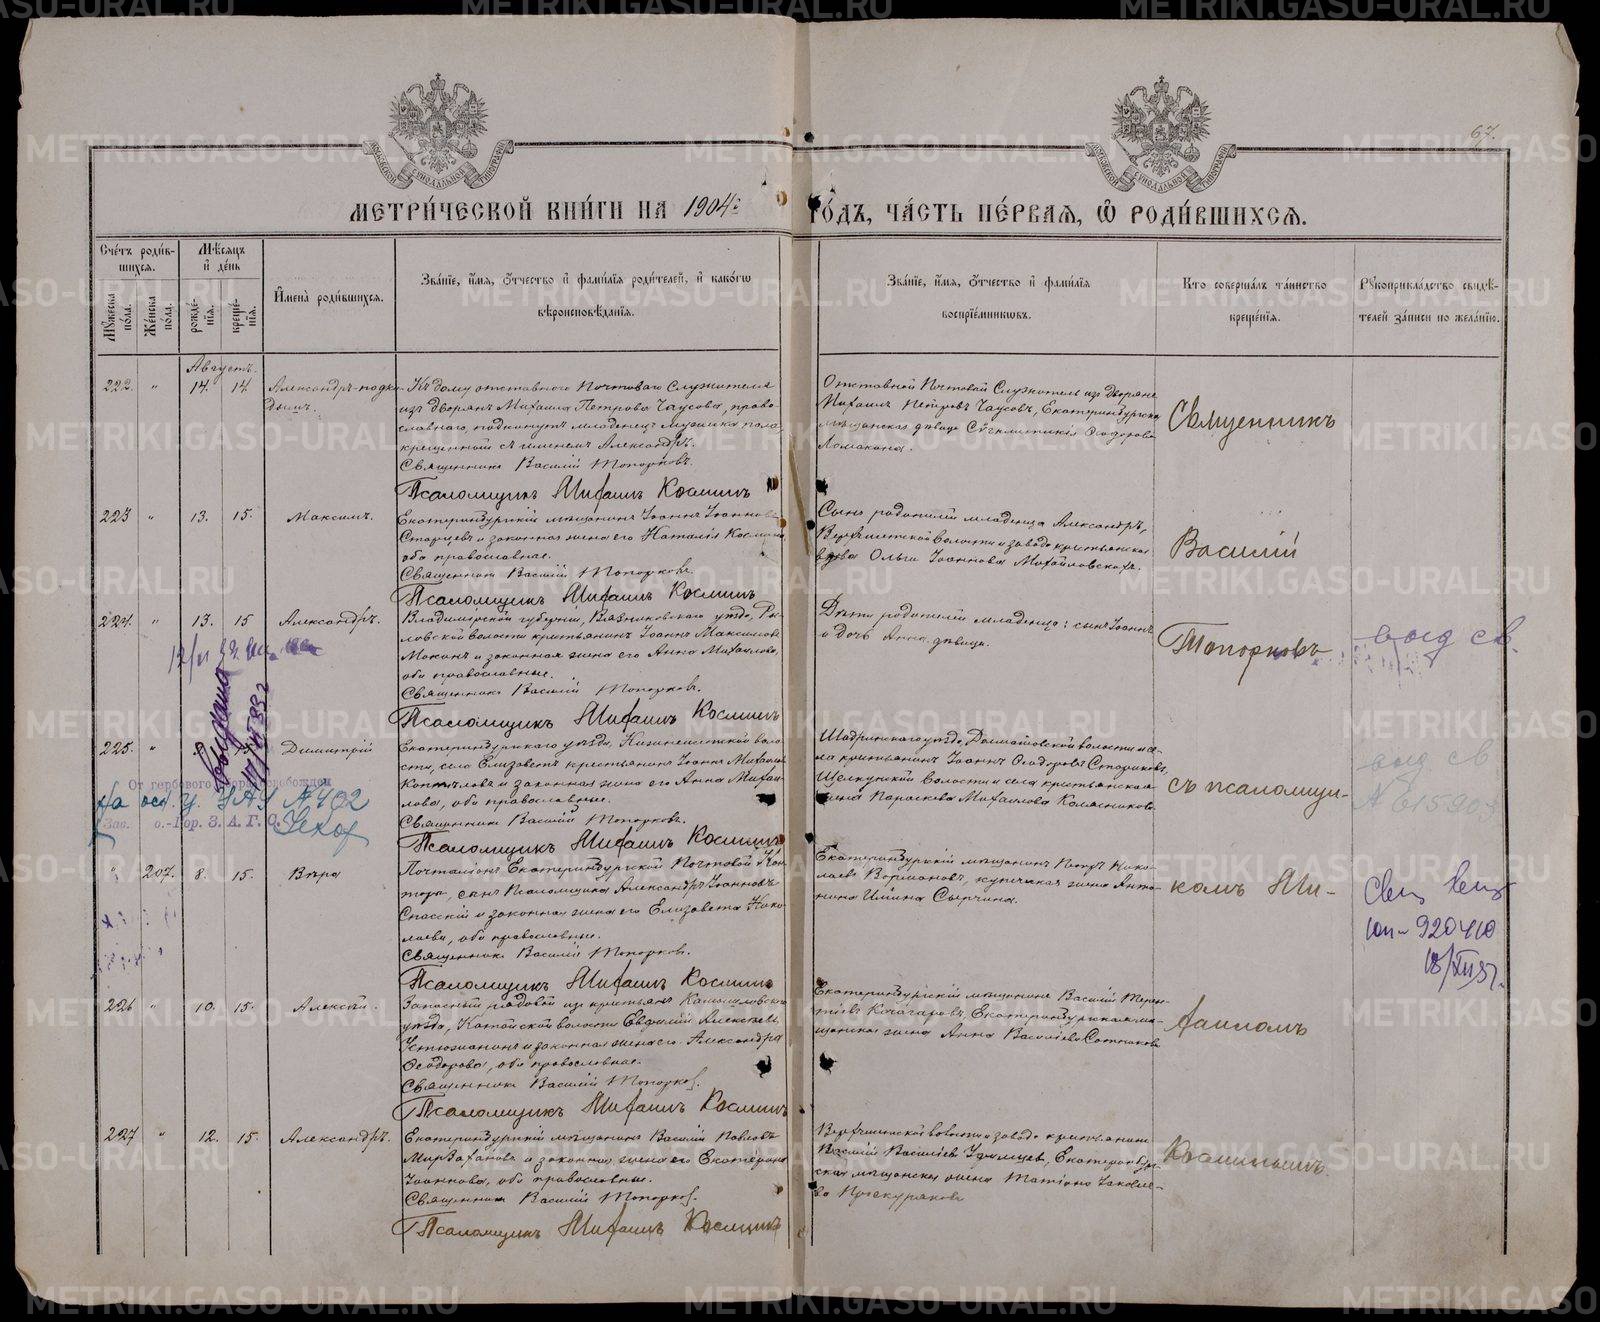 67.
МЕТРИ́ЧЕСКОЙ КНИ́ГИ НА 1904й ГО́ДЪ, ЧА́СТЬ ПЕ́РВАЯ, Ѿ РОДИ́ВШИХСЯ.
Сче́тъ роди́в-
шихся.
Му́жеска по́ла.
Же́нска по́ла.
Мѣ́сяцъ и де́нь
рожде́-
нїя.
креще́-
нїя.
Имена̀ роди́вшихся.
Зва́нїе, и́мя, о́тчество и фами́лїя роди́телей, и како́гѡ
вѣроисповѣ́данїя.
Зва́нїе, и́мя, о́тчество и фами́лїя
воспрїе́мниковъ.
Кто соверша́лъ та́инство
креще́нїя.
Рꙋкоприкла́дство свидѣ́-
телей за́писи по жела́нїю.
Августъ.
222. " 14. 14. Александръ-подки-
дышъ.
Къ дому отставного Почтоваго Служителя
изъ дворянъ Михаила Петрова Чаусова, право-
славнаго, подкинутъ младенецъ мужска пола,
крещенный съ именемъ Александръ.
Священникъ Василій Топорковъ.
Псаломщикъ Михаилъ Косминъ
Отставной Почтовой Служитель изъ дворянъ
Михаилъ Петровъ Чаусовъ, Екатеринбургская
мѣщанская дѣвица Сѵгклитикія Ѳеодорова
Ломакина.
Священникъ
223 " 13. 15. Максимъ.
Екатеринбургскій мѣщанинъ Іоаннъ Іоанновъ
Старцевъ и законная жена его Наталія Космина,
оба православные.
Священникъ Василій Топорковъ.
Псаломщикъ Михаилъ Косминъ
Сынъ родителей младенца Александръ,
Верхъисетской волости и завода крестьянская
вдова Ольга Іоаннова Михайловская.
Василій
224. " 13. 15 Александръ.
Владимірской губерніи, Вязниковскаго уѣзда, Ры-
ловской волости крестьянинъ Іоаннъ Максимовъ
Моканъ и законная жена его Анна Михаилова,
оба православные.
Священникъ Василій Топорковъ.
Псаломщикъ Михаилъ Косминъ
Дѣти родителей младенца: сынъ Іоаннъ
и дочь Анна, дѣвица.
Топорковъ
выд св.
Выдана
225. " Димитрій
Екатеринбургскаго уѣзда, Нижнеисетской воло-
сти, села Елизаветъ крестьянинъ Іоаннъ Михаиловъ
Коптѣловъ и законная жена его Анна Михаи-
лова, оба православные.
Священникъ Василій Топорковъ.
Псаломщикъ Михаилъ Косминъ
Шадринскаго уѣзда, Далматовской волости и се-
ла крестьянинъ Іоаннъ Ѳеодоровъ Стариковъ,
Щелкунской волости и села крестьянская
жена Параскева Михаилова Колясникова.
съ псаломщи-
выд св
№ 615903
От гербового сбора освобожден
На осн. У. Г. Н. У № 402
Зав. о.-Гор. З. А. Г. С.
" 207. 8. 15. Вѣра
Почталіонъ Екатеринбургской Почтовой Кон-
торы, сынъ Псаломщика Александръ Іоанновъ
Спасскій и законная жена его Елизавета Нико-
лаева, оба православные.
Священникъ Василій Топорковъ.
Псаломщикъ Михаилъ Косминъ
Екатеринбургскій мѣщанинъ Петръ Нико-
лаевъ Вормановъ, купеческая жена Анто-
нина Ильина Сырчина.
комъ Ми-
920410
18/XII 51.
226 " 10. 15. Алексѣй.
Запасный рядовой изъ крестьянъ Камышловскаго
уѣзда, Катайской волости Евѳимій Алексѣевъ
Устюжанинъ и законная жена его Александра
Ѳеодорова, оба православные.
Священникъ Василій Топорковъ.
Псаломщикъ Михаилъ Косминъ
Екатеринбургскій мѣщанинъ Василій Терен-
тіевъ Качагаровъ, Екатеринбургская мѣ-
щанская жена Анна Василіева Сотникова
хаиломъ
227 " 12. 15. Александръ.
Екатеринбургскій мѣщанинъ Василій Павловъ
Мирзахановъ и законная жена его Екатерина
Іоаннова, оба православные.
Священникъ Василій Топорковъ.
Псаломщикъ Михаилъ Косминъ
Верхъисетской волости и завода крестьянинъ
Василій Василіевъ Удинцевъ, Екатеринбург-
ская мѣщанская жена Татіана Іаковле-
ва Проскурякова
Косминымъ.